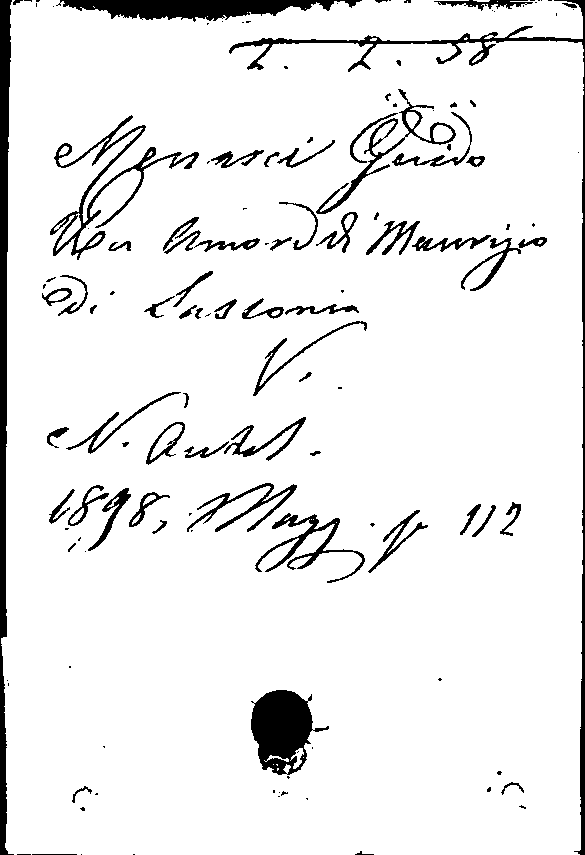 2. 2. 58
Menasci Guido
Un Amore di Maurizio
di Sassonia
V.
N. Antol.
1898, Magg. p 112